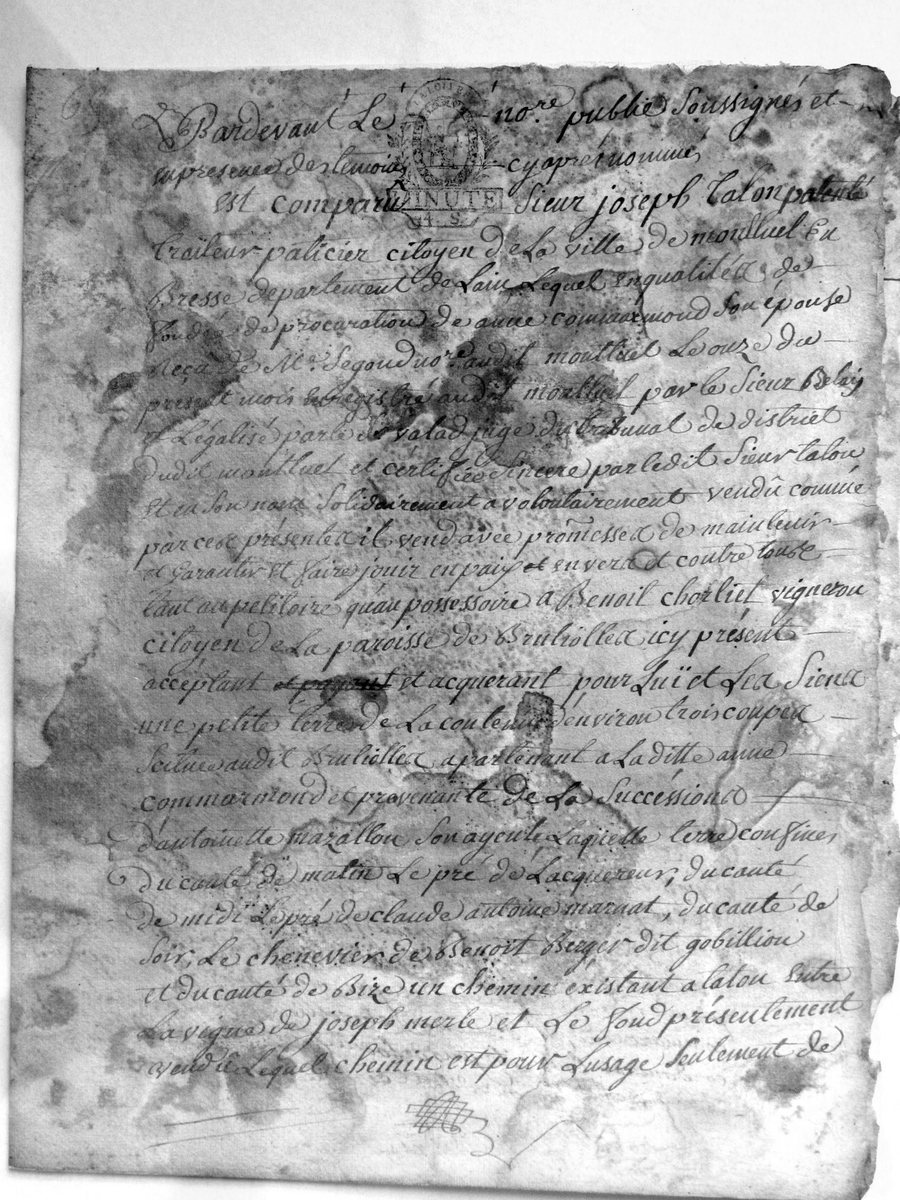 Pardevant Le nore. public Soussignés et
en presence des temoins cyaprés nommés
MINUTE
4. S.
est comparû Sieur joseph Talon patenté
traiteur paticier citoyen de La ville de montluel En
Bresse departement de Lain, Lequel en qualités de
fondé de procuration de anne commarmond Son épouse
Reçû de Me. Segond nore. audit montluel Le onze du
présent mois enregistré audit montluel par le Sieur Belay
et Légalisé par le Sr valad juge du tribunal de district
dudit montluel et certifiée Sincere par ledit Sieur talon
et en Son nom Solidairement a volontairement vendû comme
par ces présentes il vend avec promesses de maintenir
et garantir et faire jouir en paix et envers et contre tous
tant au petitoire qu'au possessoire a Benoit chorliet vigneron
citoyen de La paroisse de Brulliolles icy présent
accéptant et payant et acquerant pour Luï et Les Siens
une petite terre de La contenue d'environ trois coupes
Scitue audit Brulliolles apartenant a Laditte anne
commarmond et provenante de La Succéssions
d'antoinette mazallon Son ayeule, Laquelle terre confines
du cauté de matin Le pré de Lacquereur, du cauté
de midi Le pré de claude antoine marnat, du cauté de
Soir, Le chenevier de Benoit Berger dit gobillion
et du cauté de Bize un chemin éxistant a laton entre
La vigne de joseph merle et Le fond présentement
vendû Lequel chemin est pour Lusage Seulement de